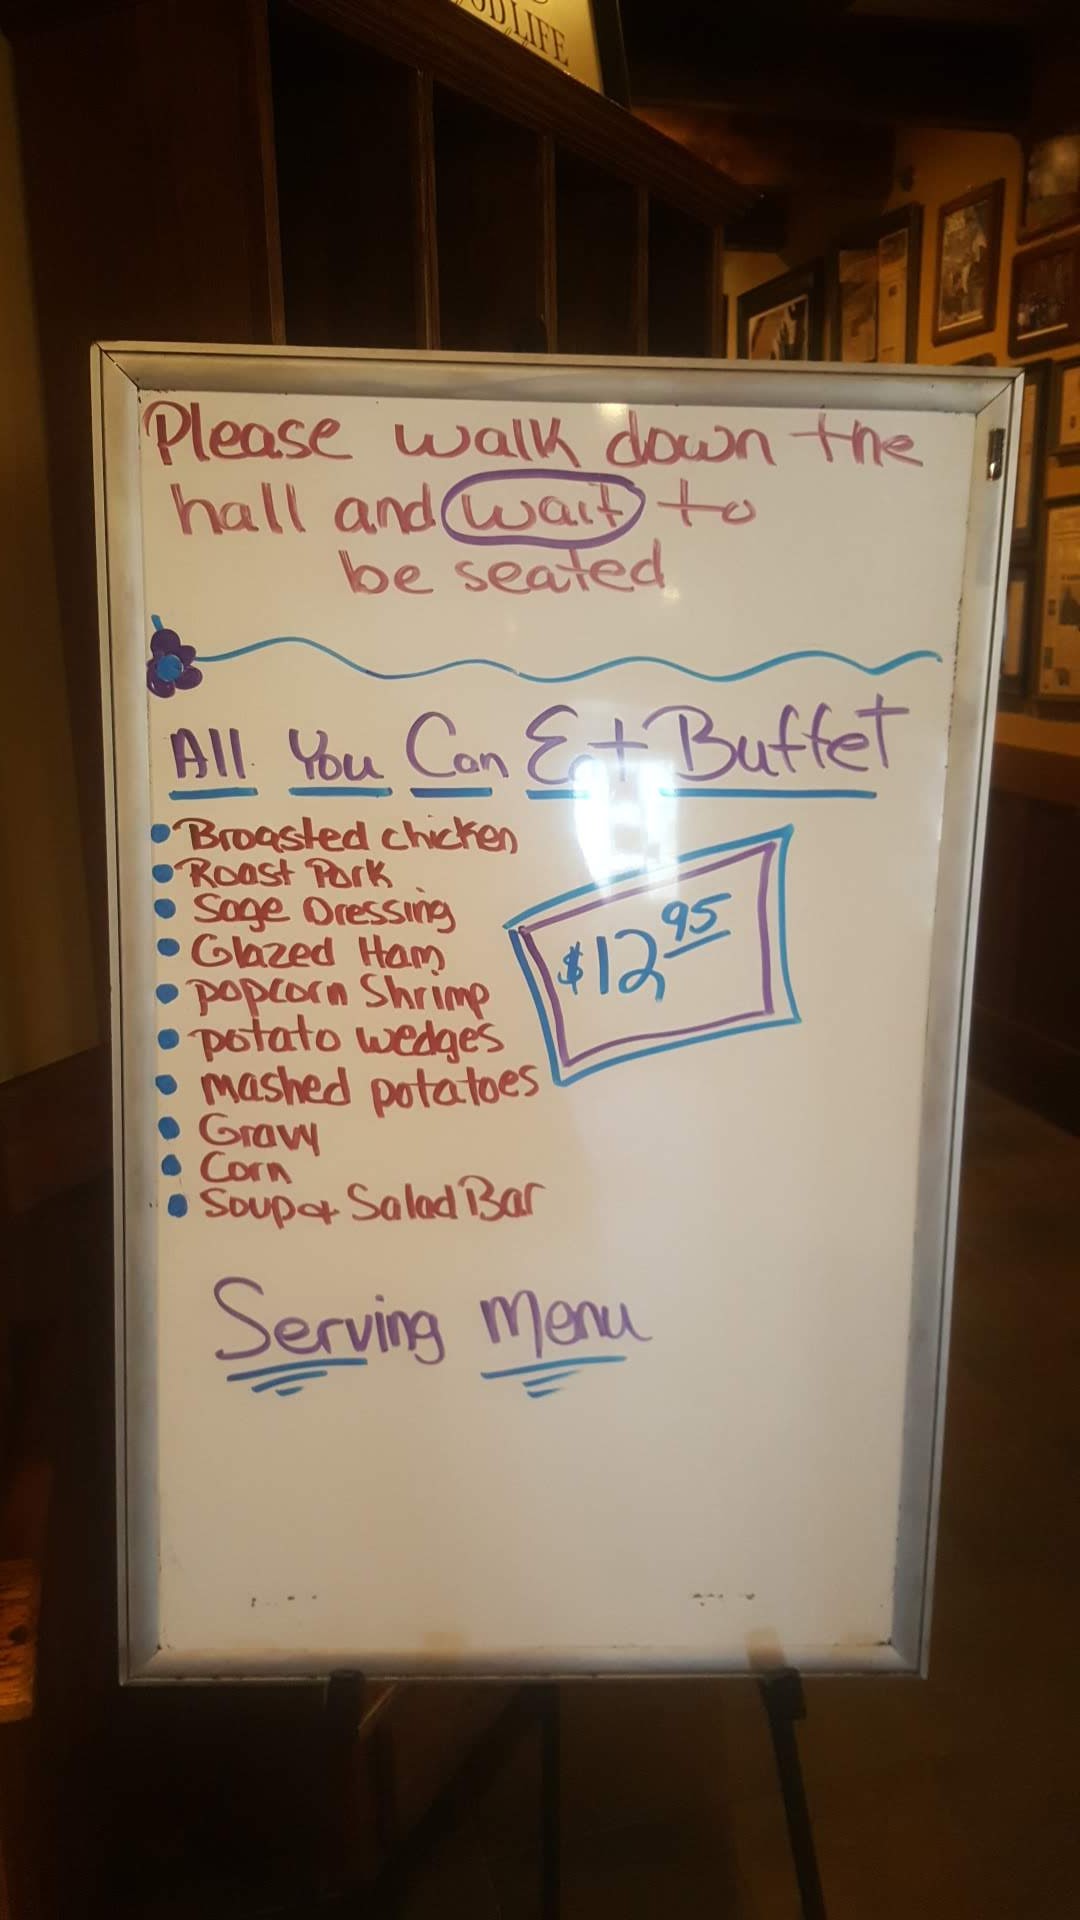 OD LIFE
Please walk down the
hall and wait to
be seated
All You Can Eat Buffet
• Broasted chicken
• Roast Pork
• Sage Dressing
• Glazed Ham
• popcorn Shrimp
• potato wedges
• mashed potatoes
• Gravy
• Corn
• Soup & Salad Bar
$12 95
Serving menu